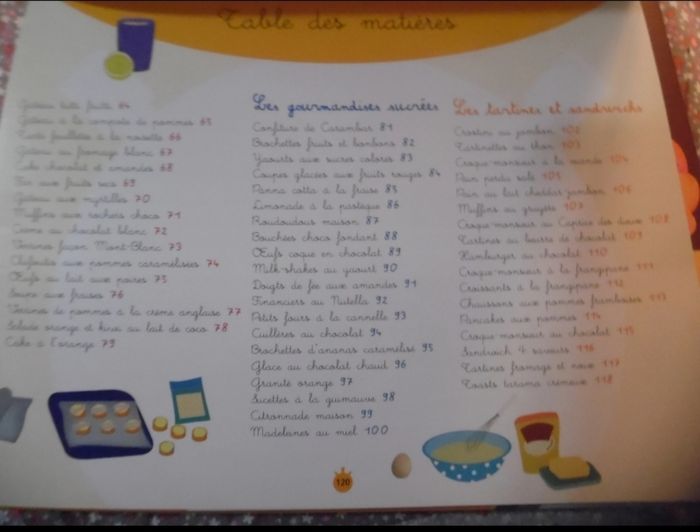 Table des matières
Gâteau tutti frutti 64
Gâteau à la compote de pommes 65
Tarte feuilletée à la noisette 66
Gâteau au fromage blanc 67
Cake chocolat et amandes 68
Far aux fruits secs 69
Gâteau aux myrtilles 70
Muffins aux rochers choco 71
Crème au chocolat blanc 72
Verrines façon Mont-Blanc 73
Clafoutis aux pommes caramélisées 74
Œufs au lait aux poires 75
Soupe aux fraises 76
Verrines de pommes à la crème anglaise 77
Salade orange et kiwi au lait de coco 78
Cake à l'orange 79
Les gourmandises sucrées
Confiture de Carambar 81
Brochettes fruits et bonbons 82
Yaourts aux sucres colorés 83
Coupes glacées aux fruits rouges 84
Panna cotta à la fraise 85
Limonade à la pastèque 86
Roudoudous maison 87
Bouchées choco fondant 88
Œufs coque en chocolat 89
Milk-shakes au yaourt 90
Doigts de fée aux amandes 91
Financiers au Nutella 92
Petits fours à la cannelle 93
Cuillères au chocolat 94
Brochettes d'ananas caramélisé 95
Glace au chocolat chaud 96
Granité orange 97
Sucettes à la guimauve 98
Citronnade maison 99
Madeleines au miel 100
Les tartines et sandwichs
Crostini au jambon 102
Tartinettes au thon 103
Croque-monsieur à la viande 104
Pain perdu salé 105
Pain au lait cheddar jambon 106
Muffins au gruyère 107
Croque-monsieur au Caprice des dieux 108
Tartines au beurre de chocolat 109
Hamburger au chocolat 110
Croque-monsieur à la frangipane 111
Croissants à la frangipane 112
Chaussons aux pommes framboises 113
Pancakes aux pommes 114
Croque-monsieur au chocolat 115
Sandwich 4 saveurs 116
Tartines fromage et noix 117
Toasts tarama crémeux 118
120